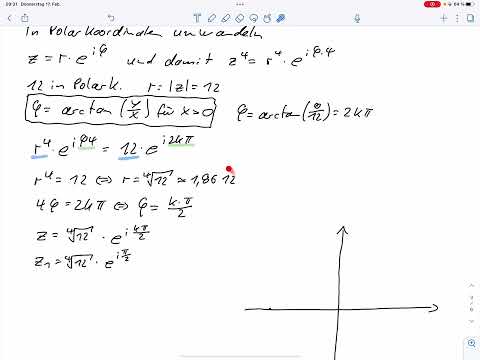 09:31 Donnerstag 17. Feb.
64 %
in Polarkoordinaten umwandeln
z = r · e^{iφ} und damit z⁴ = r⁴ · e^{iφ·4}
12 in Polark. r = |z| = 12
φ = arctan(y/x) für x>0 φ = arctan(0/12) = 2kπ
r⁴ · e^{iφ4} = 12 · e^{i2kπ}
r⁴ = 12 ⇔ r = ⁴√12 ≈ 1,8612
4φ = 2kπ ⇔ φ = k·π/2
z = ⁴√12 · e^{i kπ/2}
z₁ = ⁴√12 · e^{i π/2}